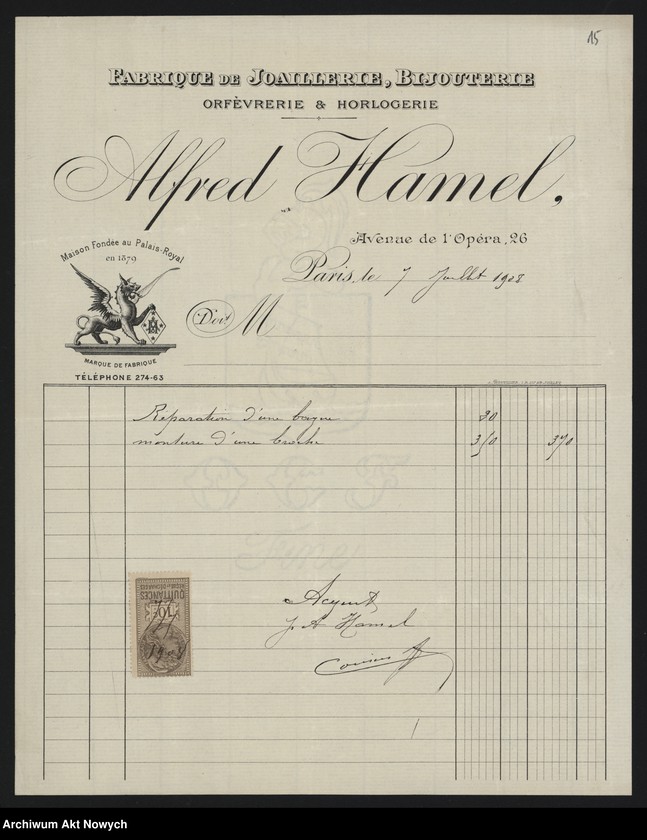 15
FABRIQUE DE JOAILLERIE, BIJOUTERIE
ORFÈVRERIE & HORLOGERIE
Alfred Hamel,
Avenue de l'Opéra, 26
Maison Fondée au Palais-Royal
en 1879
Paris, le 7 Juillet 1908
Doit M
MARQUE DE FABRIQUE
TÉLÉPHONE 274-63
Réparation d'une bague 20
monture d'une broche 350 370
QUITTANCES
10
7/7
1908
Acquit
p. A Hamel
Archiwum Akt Nowych